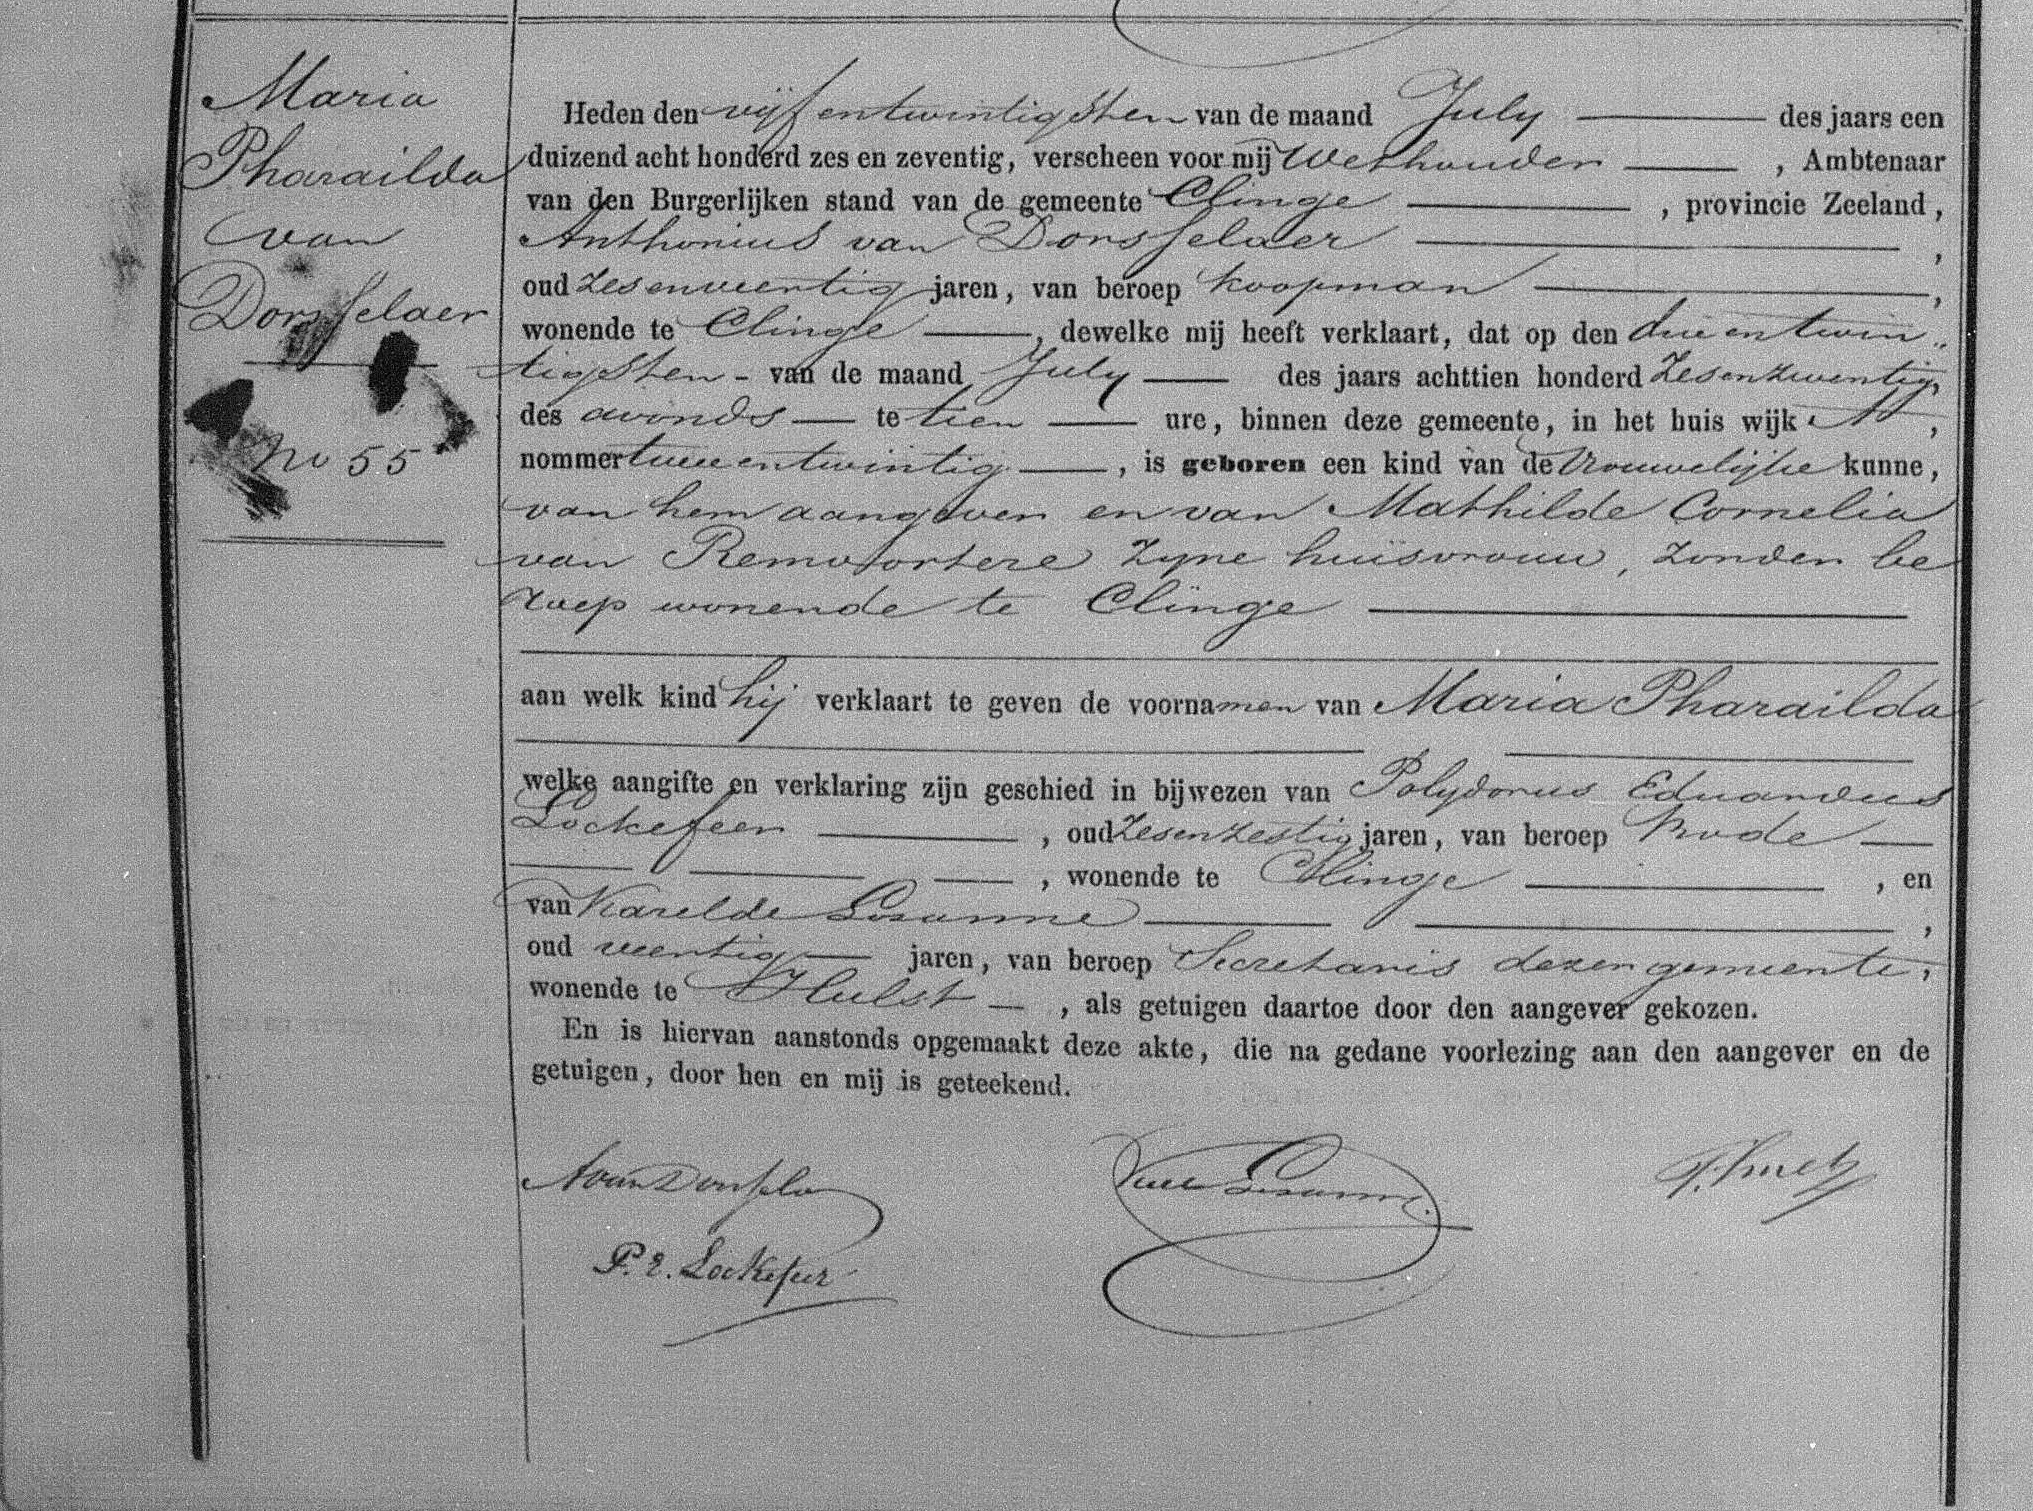 Maria
Pharailda
van
Dorsselaer
No 55
Heden den vijfentwintigsten van de maand July des jaars een
duizend acht honderd zes en zeventig, verscheen voor mij Wethouder, Ambtenaar
van den Burgerlijken stand van de gemeente Clinge, provincie Zeeland,
Anthonius van Dorsselaer,
oud zesenveertig jaren, van beroep koopman,
wonende te Clinge, dewelke mij heeft verklaart, dat op den drieentwin„
tigsten - van de maand July des jaars achttien honderd zesenzeventig,
des avonds te tien ure, binnen deze gemeente, in het huis wijk A,
nommer tweeentwintig, is geboren een kind van de vrouwelijke kunne,
van hem aangever en van Mathilde Cornelia
van Remoortere zyne huisvrouw, zonder be
roep wonende te Clinge
aan welk kind hij verklaart te geven de voornamen van Maria Pharailda
welke aangifte en verklaring zijn geschied in bijwezen van Polydorus Eduardus
Lockefeer, oud zesenzestig jaren, van beroep bode
, wonende te Clinge, en
van Karel de Losanne,
oud veertig jaren, van beroep Secretaris dezer gemeente,
wonende te Hulst, als getuigen daartoe door den aangever gekozen.
En is hiervan aanstonds opgemaakt deze akte, die na gedane voorlezing aan den aangever en de
getuigen, door hen en mij is geteekend.
A van Dorsselaer
P. E. Lockefeer